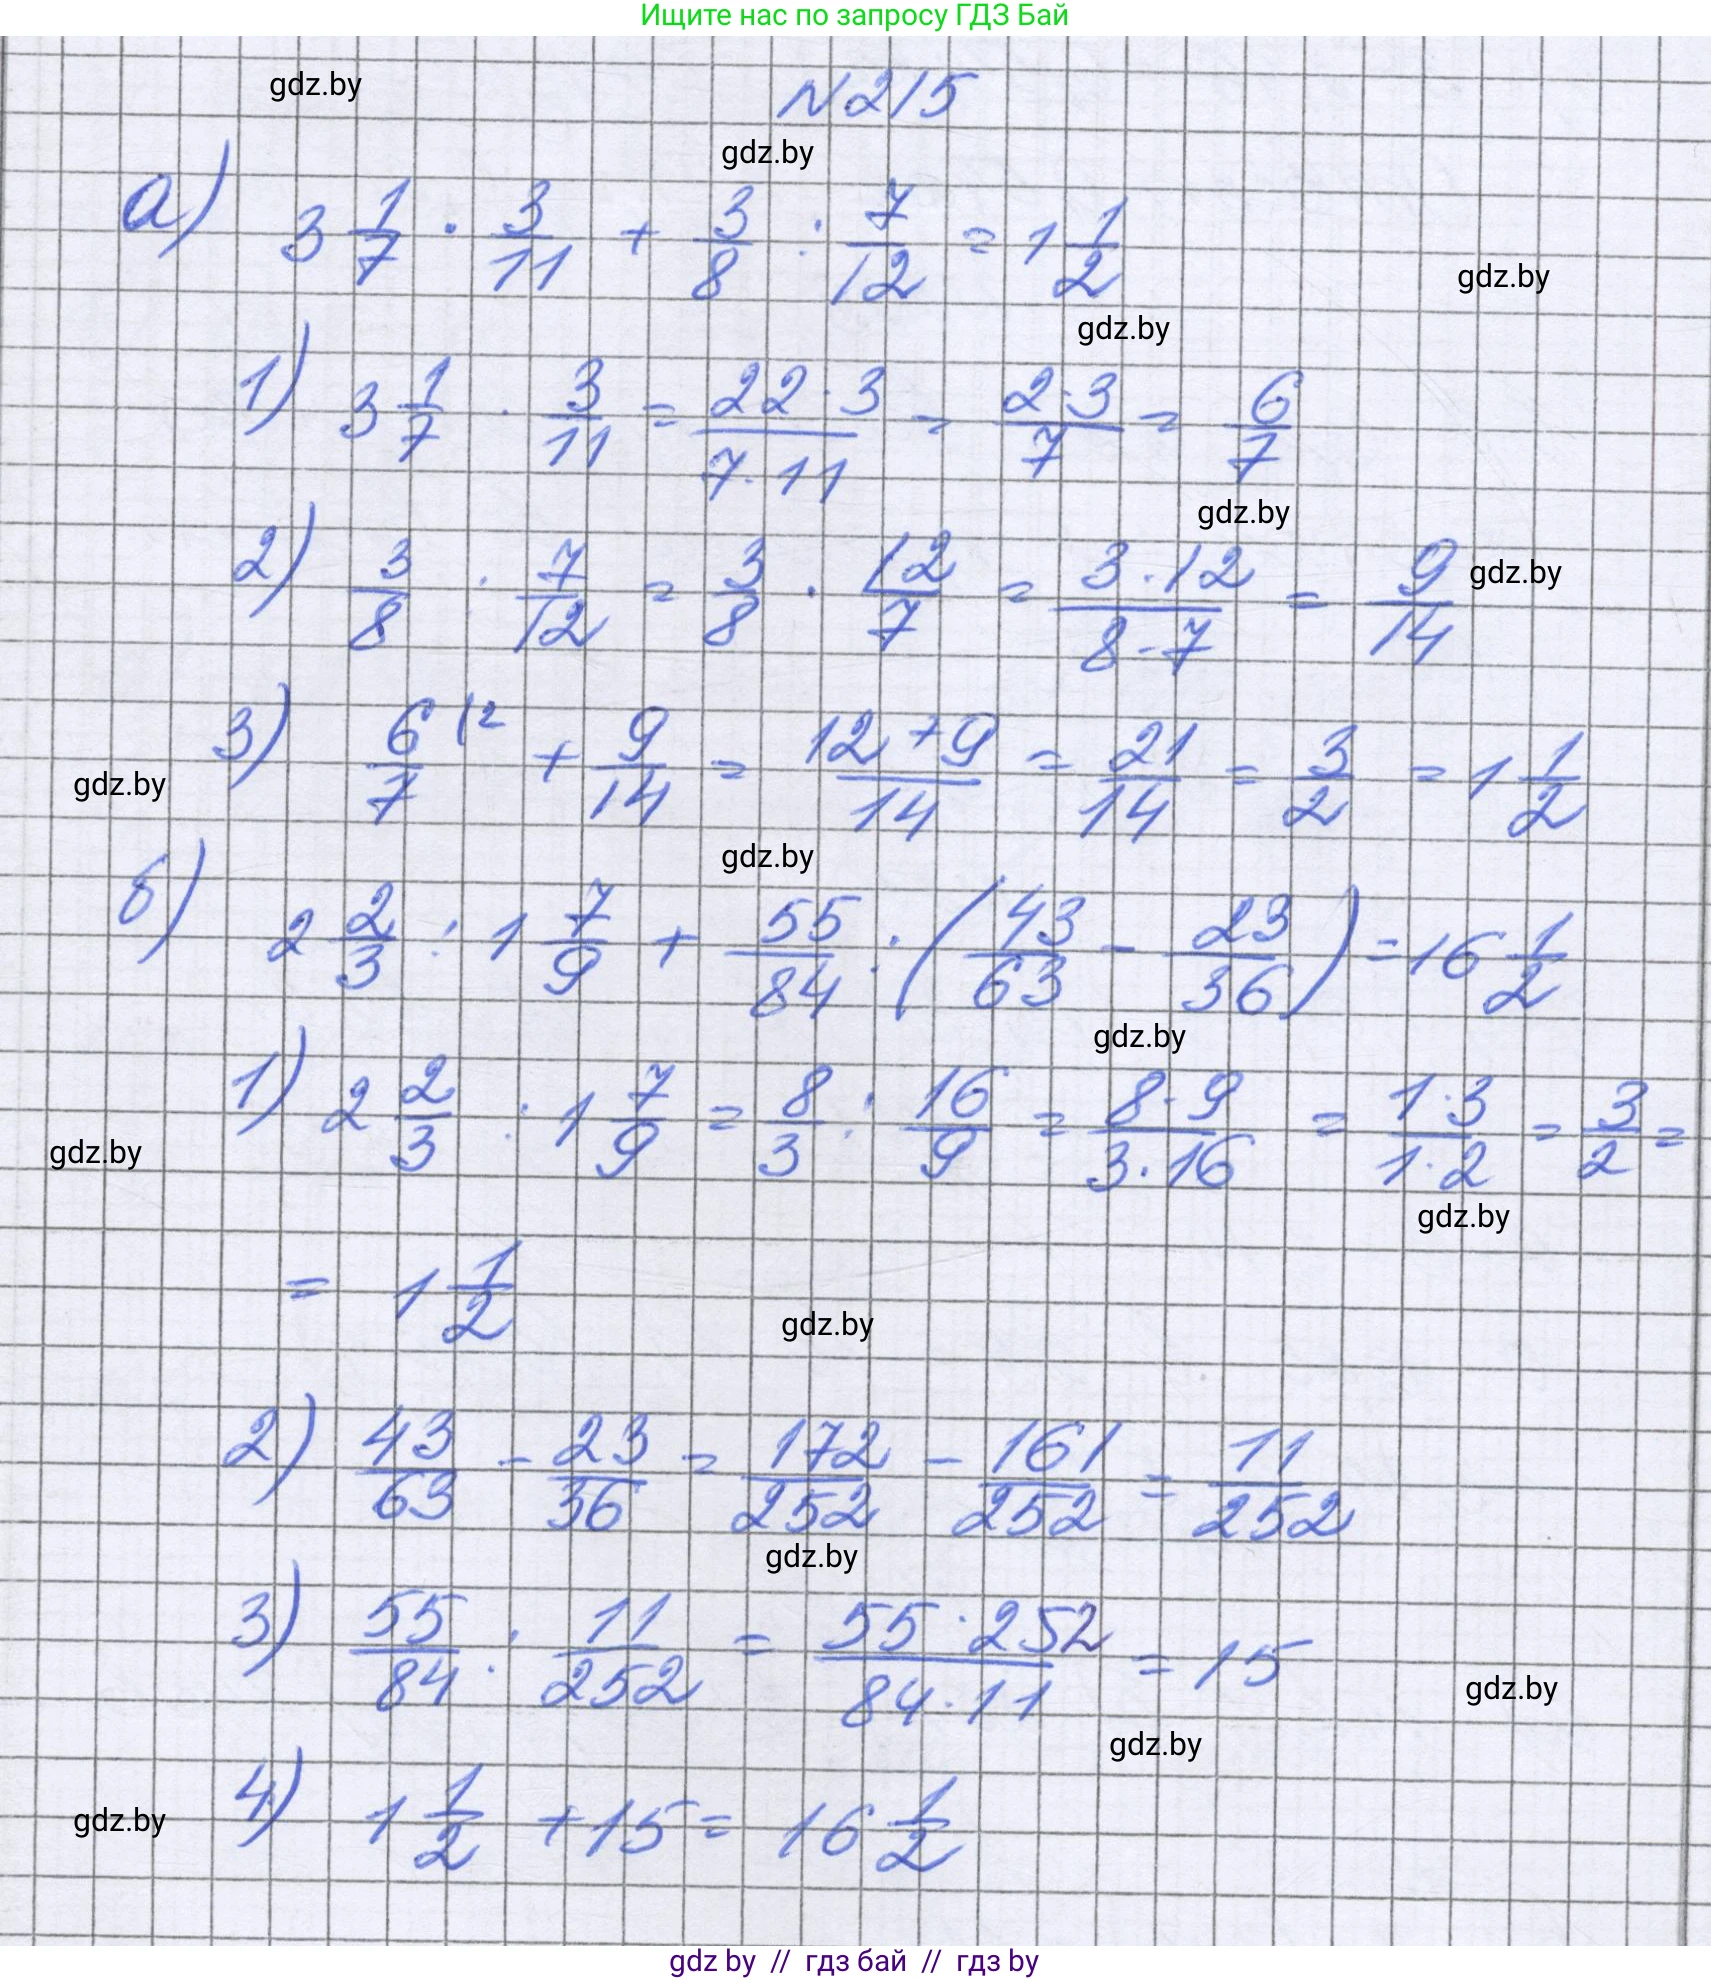 Ищите нас по запросу ГДЗ Бай
gdz.by
N215
gdz.by
а) 3 1/7 · 3/11 + 3/8 : 7/12 = 1 1/2
gdz.by
gdz.by
1) 3 1/7 · 3/11 = 22·3/7·11 = 2·3/7 = 6/7
gdz.by
2) 3/8 : 7/12 = 3/8 · 12/7 = 3·12/8·7 = 9/14
gdz.by
3) 6/7 (2 + 9/14 = 12+9/14 = 21/14 = 3/2 = 1 1/2
gdz.by
gdz.by
б) 2 2/3 : 1 7/9 + 55/84 : (43/63 - 23/36) = 16 1/2
gdz.by
1) 2 2/3 : 1 7/9 = 8/3 : 16/9 = 8·9/3·16 = 1·3/1·2 = 3/2 =
gdz.by
gdz.by
= 1 1/2
gdz.by
2) 43/63 - 23/36 = 172/252 - 161/252 = 11/252
gdz.by
3) 55/84 : 11/252 = 55·252/84·11 = 15
gdz.by
gdz.by
4) 1 1/2 + 15 = 16 1/2
gdz.by
gdz by // гдз бай // гдз by